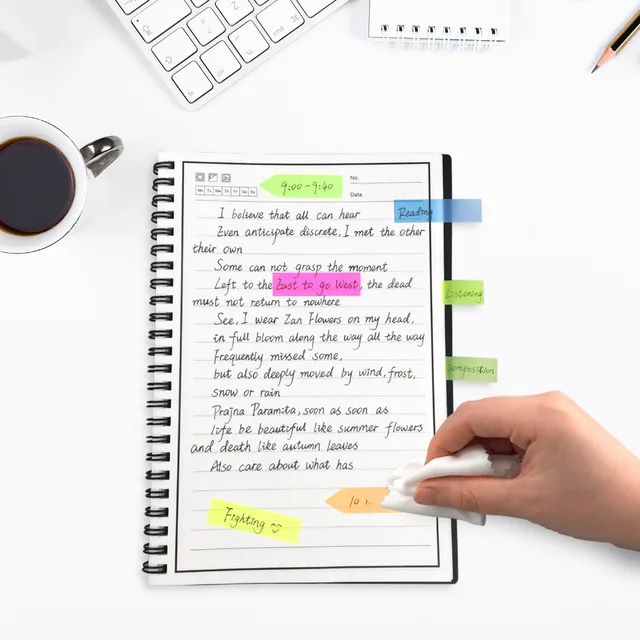 9:00-9:40
No.
Mo Tu We Th Fr Sa Su
Date
Reading
I believe that all can hear
Even anticipate discrete, I met the other
their own
Some can not grasp the moment
Left to the East to go West, the dead
must not return to nowhere
Listening
See, I wear Zan Flowers on my head,
in full bloom along the way all the way
Frequently missed some,
but also deeply moved by wind, frost,
composition
snow or rain
Prajna Paramita, soon as soon as
life be beautiful like summer flowers
and death like autumn leaves
Also care about what has
10
Fighting